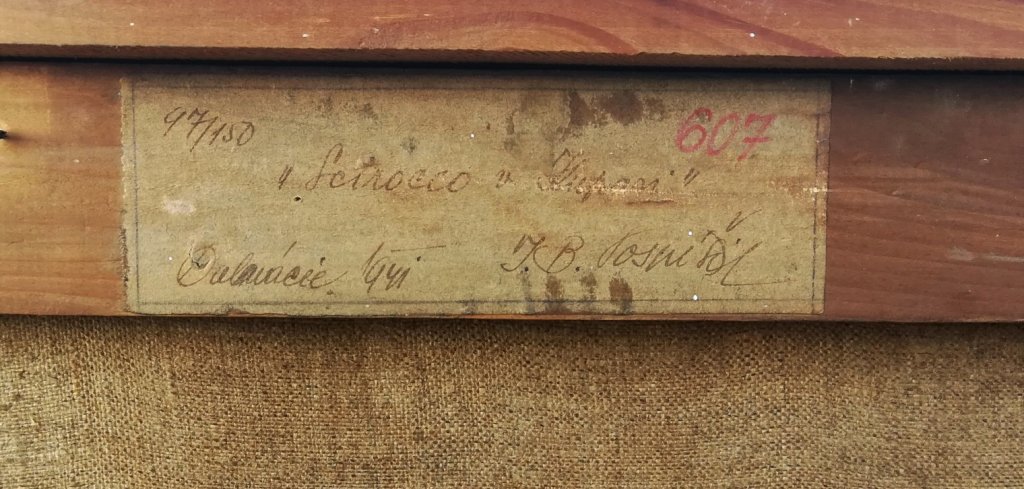 97/150
607
"Scirocco v Župani"
Dalmácie 1941 J. B. Pospíšil